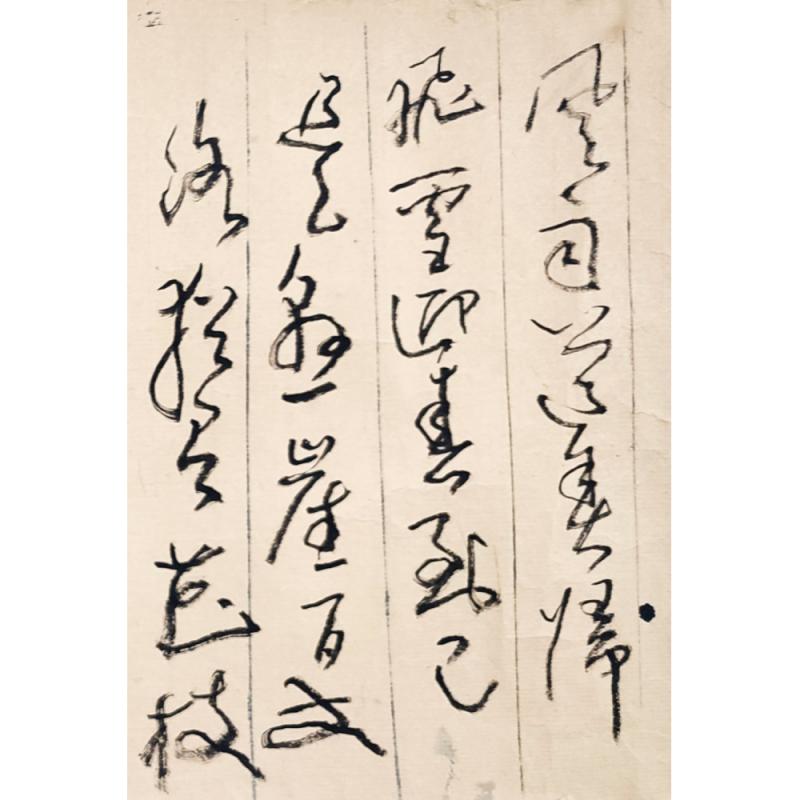 风雨送春归
飞雪迎春到已
是悬崖百丈
冰犹有花枝